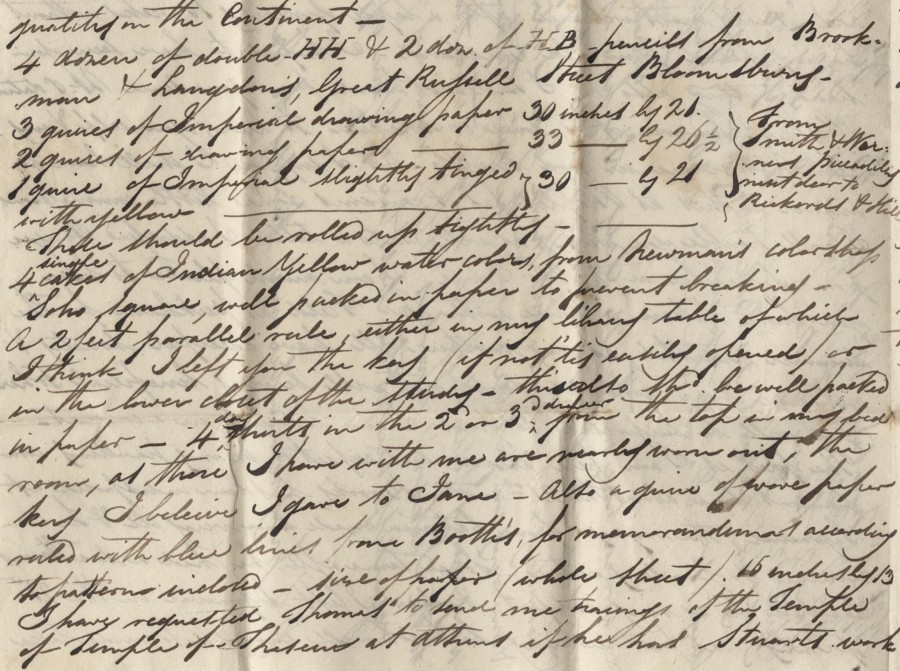 qualities on the Continent —
4 dozen of double HH & 2 doz. of HB pencils from Brook-
man & Langdons, Great Russell Street Bloomsbury —
3 quires of Imperial drawing paper 30 inches by 21.
2 quires of drawing paper —— 33 — by 26½
1 quire of Imperial slightly tinged
with yellow —— } 30 — by 21
} From
Smith & War-
ners Piccadilly
next door to
Rickards &
These should be rolled up tightly —
4 single cakes of Indian Yellow water colors, from Newman's color shop
Soho square, well packed in paper to prevent breaking —
A 2 feet parallel rule, either in my library table of which
I think I left you the key (if not 'tis easily opened) or
in the lower closet of the study — this also shd. be well packed
in paper — 4 shirts in the 2d or 3d drawer from the top in my bed
room, as those I have with me are nearly worn out, the
key I beleive I gave to Jane — Also a quire of wove paper
ruled with blue lines from Booth's, for memorandums according
to pattern inclosed — size of paper (whole sheet) 15 inches by 13
I have requested Thomas to send me tracings of the Temple
of Temple of Theseus at Athens if he has Stuarts work